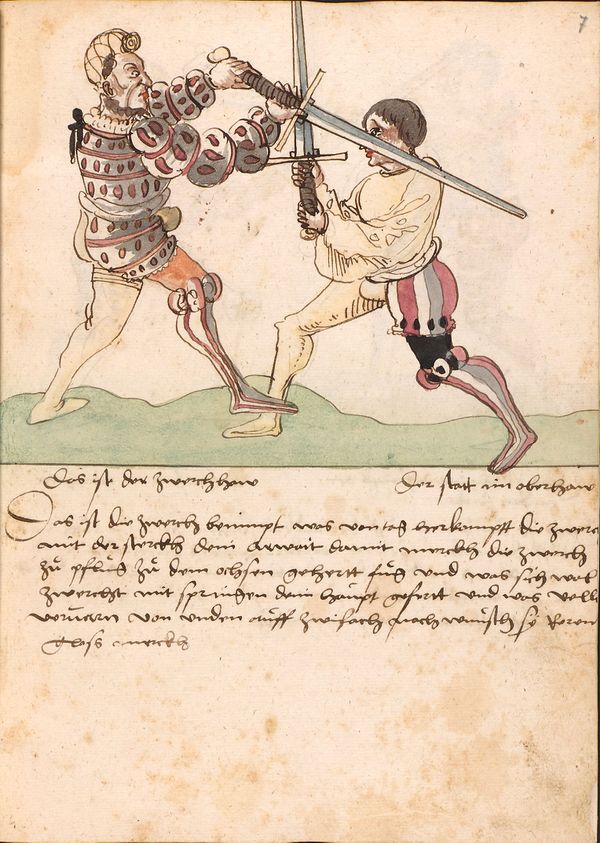 7
Das ist der zwerchhaw
Der statt im oberhaw
Das ist die zwerch benimpt was von tag herkumpt die zwerch
mit der sterckh dein arwait damit merckh die zwerch
zü pflüg zü dem ochsen gehertt füg und was sich wol
zwercht mit springen dem haupt gefert und was velle
verüarn von unden auff nach wünsch
gloss merckh